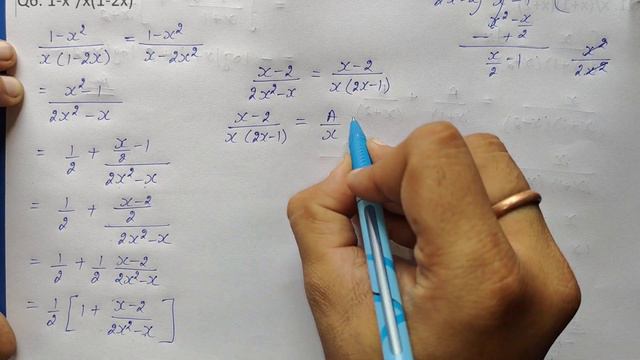 Q6. 1-x²/x(1-2x)
(1-x²)/(x(1-2x)) = (1-x²)/(x-2x²)
= (x²-1)/(2x²-x)
= 1/2 + (x/2 -1)/(2x²-x)
= 1/2 + ((x-2)/2)/(2x²-x)
= 1/2 + 1/2 (x-2)/(2x²-x)
= 1/2 [1 + (x-2)/(2x²-x)]
(x-2)/(2x²-x) = (x-2)/(x(2x-1))
(x-2)/(x(2x-1)) = A/x
x² - x/2
- +
x/2 - 1
x²/2x²